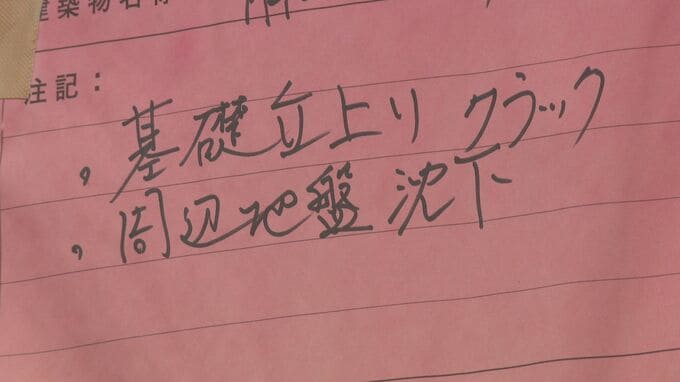 建築物名称
注記：
、基礎立上り クラック
、周辺地盤沈下